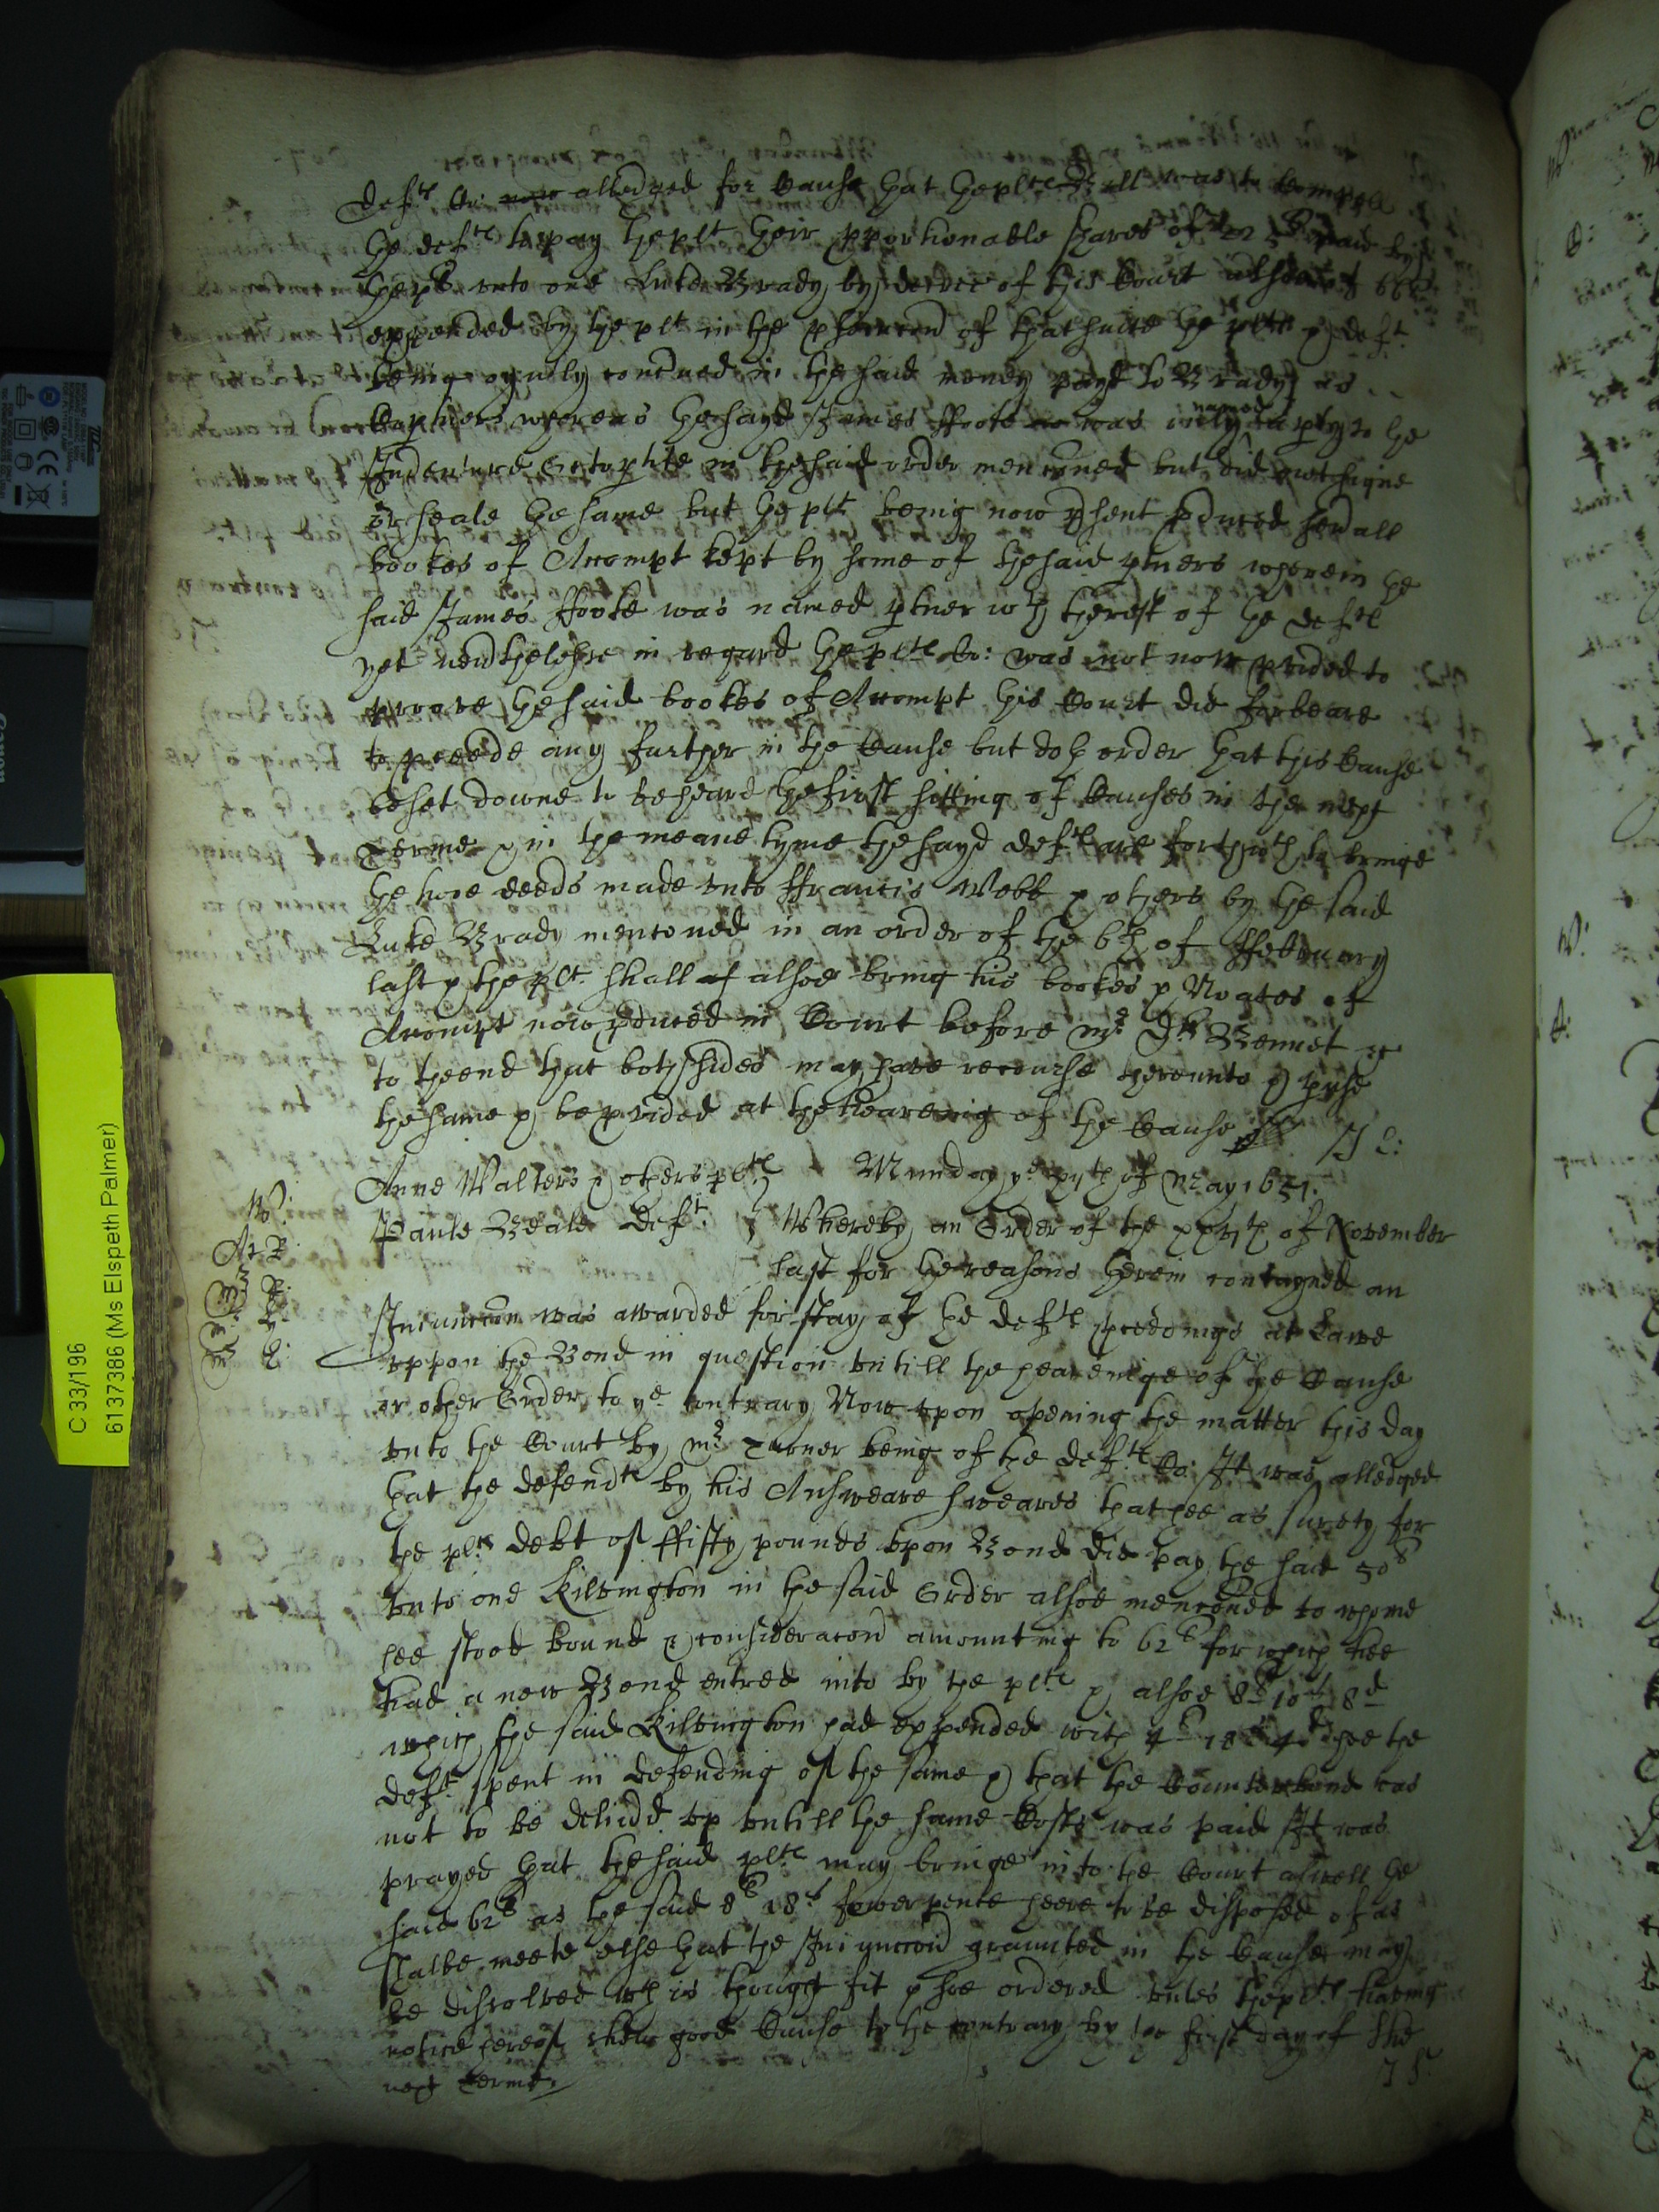 deftes Co: now alledged for Cause that the pltes Bill was to Compell
the deftes to pay the plt their pportionable shares of paid by
the plt unto one Luke Brady by decree of this Court
expended by the plt in the psecucion of that suite the plte & deft
being equally concerned in the said money payd to Brady as
Partners whereas the sayd James Foote was only named a party to the
Indenture Octoptite in the said order mencioned but did not signe
or seale the same but the plt being now psent pduced sevall
bookes of Accompt kept by some of the said ptners wherein the
said James Foote was named ptner wth the rest of the deftes
yet nevthelesse in regard the pltes Co: was not now pvided to
proove the said bookes of Accompt this Court did forbeare
to pceede any further in the Cause but doth order that this Cause
be set downe to be heard the first sitting of Causes in the next
Terme & in the meane tyme the sayd deftes are forthwth to bringe
the two deeds made unto ffrancis Webb & others by the said
Luke Brady mencioned in an order of the 6th of ffebruary
last & the plt shall alsoe bring his bookes & Noates of
Accompt now pduced in Court before Mr Dr Bennet
to the end that both sides may have recourse thereunto & puse
the same & be pvided at the heareing of the Cause
J C:
Anne Walters & others pltes Munday ye of May 1651.
Paule Beale Deft Whereby an Order of the xxvth of November
last for the reasons therein contayned an
Iniunccon was awarded for stay of the deftes pceedings at Lawe
uppon the Bond in question untill the heareinge of the Cause
or other Order to ye contrary Now upon opening the matter this day
unto the Court by Mr Turner being of the deftes Co: It was alledged
that the defendte by his Answeare sweares that hee as surety for
the pltes debt of ffifty pounds upon Bond did pay the said 50l
unto one Kilvington in the said Order alsoe mencioned to whome
hee stood bound & consideracon amounting to 62l for which hee
had a new Bond entred into by the pltes & alsoe 8l 10s 8d
which the said Kilvington had expended with 4l 18s 4d hee the
deft spent in defending of the same & that the Counterbond was
not to be delivd up untill the same Costs was paid It was
prayed that the said pltes may bringe into the Court aswell the
said 62l as the said 8l 18s fower pence heere to be disposed of as
shalbe meete else that the Iniunccon graunted in the Cause may
be dissolved wch is thought fit & soe ordered unles the pltes having
notice hereof shew good Cause to the contrary by the first day of the
next Terme
J S:
W:
At B
B:
C 33/196
61373786 (Ms Elspeth Palmer)
Canon